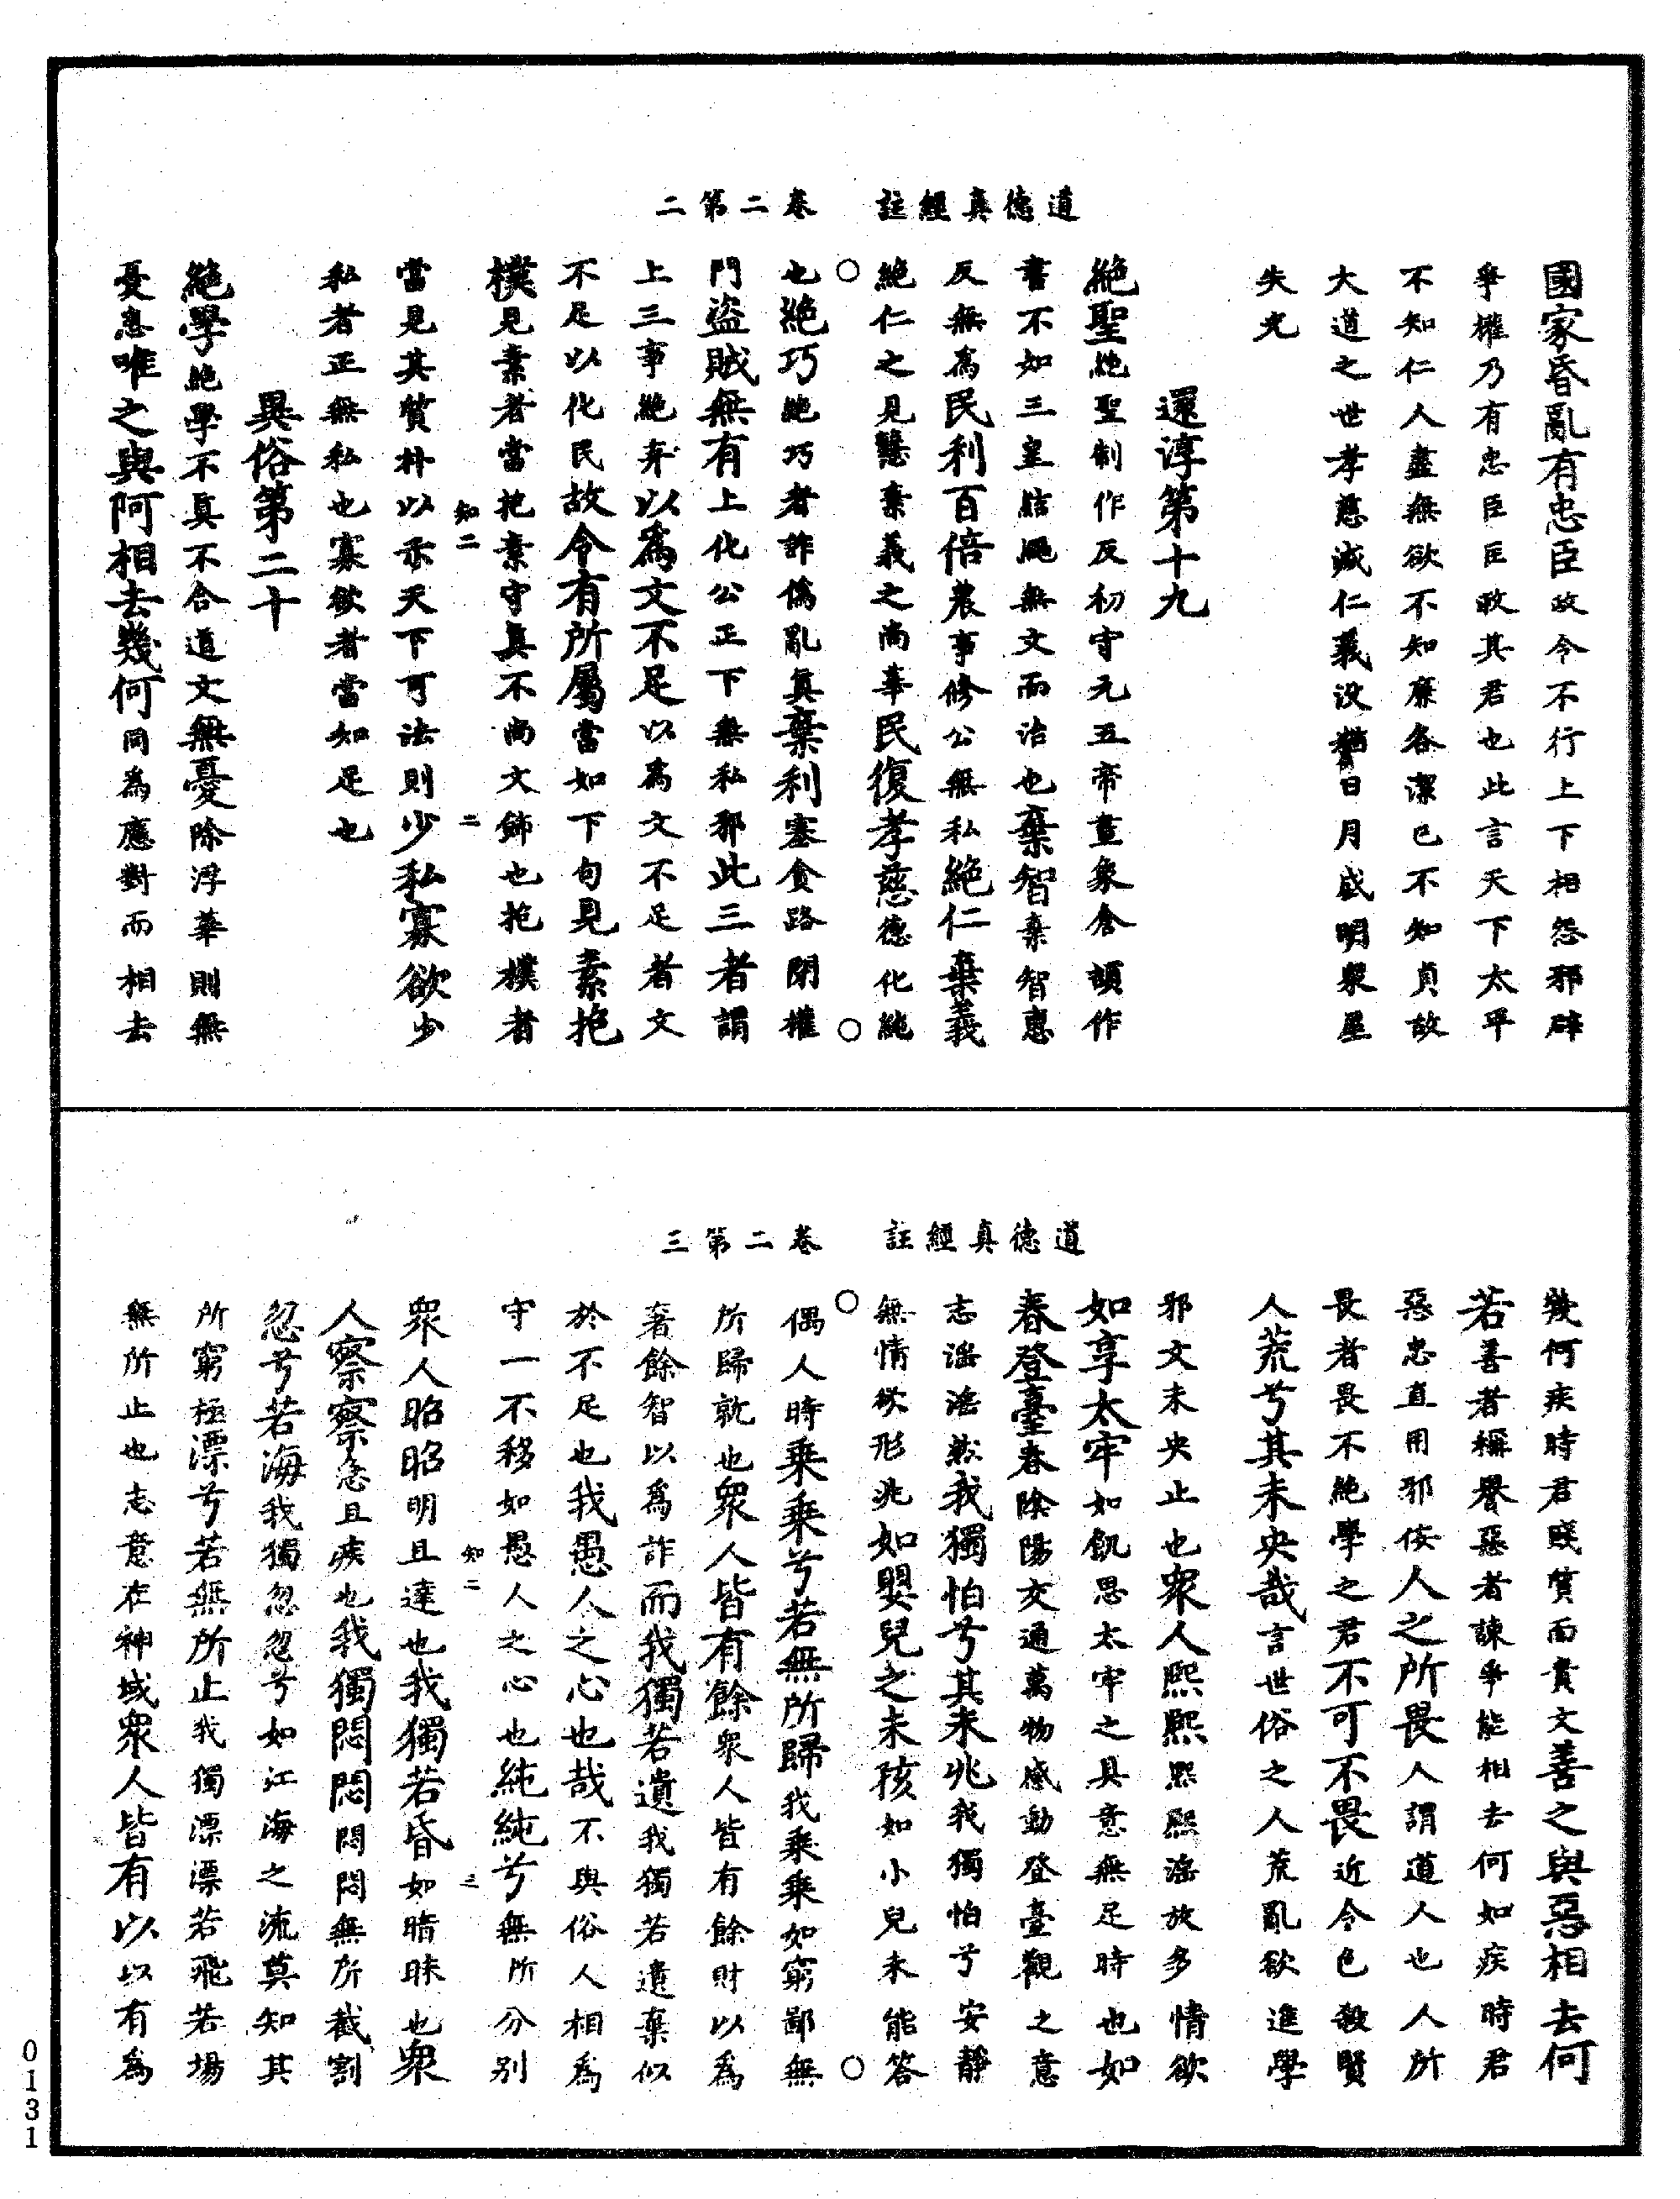 道德真經註　卷二第二
國家昏亂有忠臣政令不行上下相怨邪辟
爭權乃有忠臣匡敢其君也此言天下太平
不知仁人盡無欲不知廉各潔已不知貞故
大道之世孝慈滅仁義没猶日月盛明衆星
失光
還淳第十九
絶聖絶聖制作反初守元五帝畫象倉頡作
書不如三皇結繩無文而治也棄智棄智惠
反無為民利百倍農事修公無私絶仁棄義
絶仁之見慧棄義之尚華民復孝慈德化純
○
○
也絶巧絶巧者詐僞亂真棄利塞貪路閉權
門盗賊無有上化公正下無私邪此三者謂
上三事絶弃以為文不足以為文不足者文
不足以化民故令有所屬當如下句見素抱
樸見素者當抱素守真不尚文飾也抱樸者
知二　二
當見其質朴以示天下可法則少私寡欲少
私者正無私也寡欲者當知足也
異俗第二十
絶學絶學不真不合道文無憂除浮華則無
憂患唯之與阿相去幾何同為應對而相去
道德真經註　卷二第三
幾何疾時君賤質而貴文善之與惡相去何
若善者稱譽惡者諫爭能相去何如疾時君
惡忠直用邪佞人之所畏人謂道人也人所
畏者畏不絶學之君不可不畏近令色殺賢
人荒兮其未央哉言世俗之人荒亂欲進學
邪文未央止也衆人熙熙熙熙滛放多情欲
如享太牢如飢思太牢之具意無足時也如
春登臺春陰陽交通萬物感動登臺觀之意
志滛滛然我獨怕兮其未兆我獨怕兮安靜
無情欲形兆如嬰兒之未孩如小兒未能答
○
○
偶人時乘乘兮若無所歸我乘乘如窮鄙無
所歸就也衆人皆有餘衆人皆有餘財以為
奢餘智以為詐而我獨若遺我獨若遺棄似
於不足也我愚人之心也哉不與俗人相為
守一不移如愚人之心也純純兮無所分别
知二　三
衆人昭昭明且達也我獨若昏如暗昧也衆
人察察急且疾也我獨悶悶悶悶無所截割
忽兮若海我獨忽忽兮如江海之流莫知其
所窮極漂兮若無所止我獨漂漂若飛若揚
無所止也志意在神域衆人皆有以以有為
0131